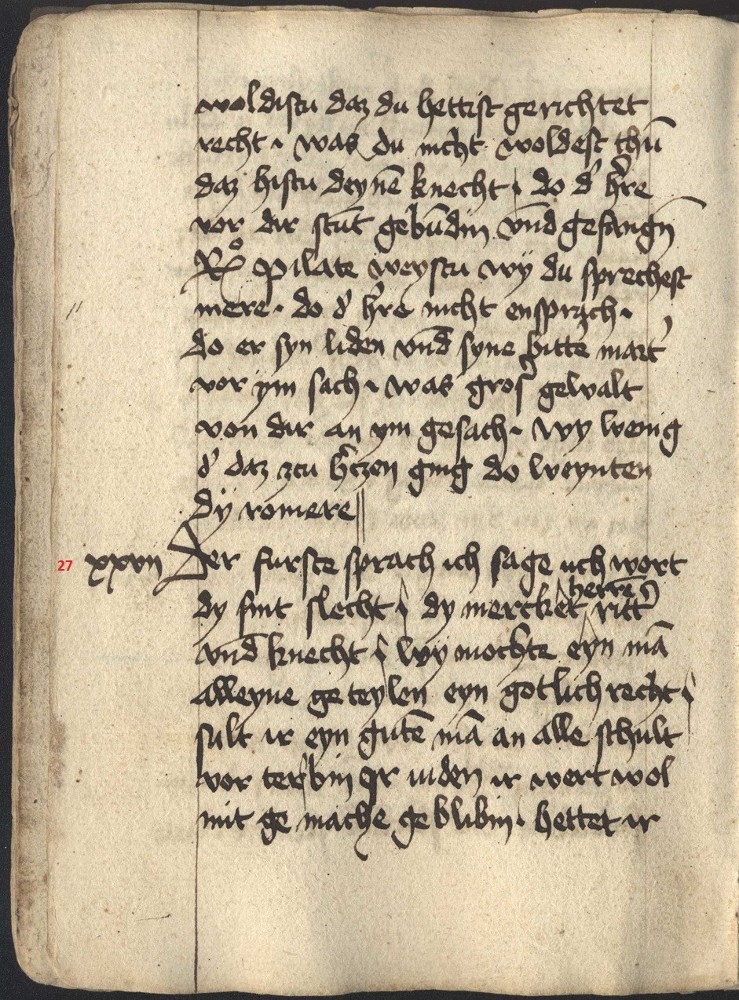 woldistu daz du hettist gerichtet
recht · was du nicht woldest thū
daz histu deynē knecht · do d' h're
vor dir stūt gebūdin vnd gefangn̄
Rº pilate weystu wy du sprechest
mere · do d' h're nicht ensprach ·
do er syn liden vnd syne bitt'e mart'
vor ym sach · was gros gewalt
von dir an ym gesach · wy wenig
d' daz zcu h'tzen ging do weynten
dy romere
27 xxvii Der furste sprach ich sage uch wort
dy sint slecht · dy mercket herrē ritt'
vnd knecht · wy mochte eyn mā
alleyne geteylen eyn gotlich recht ·
sult ir eyn gutē mā an alle schult
vor terbin Ir iuden ir wert wol
mit ge mache ge blibin · hettet ir